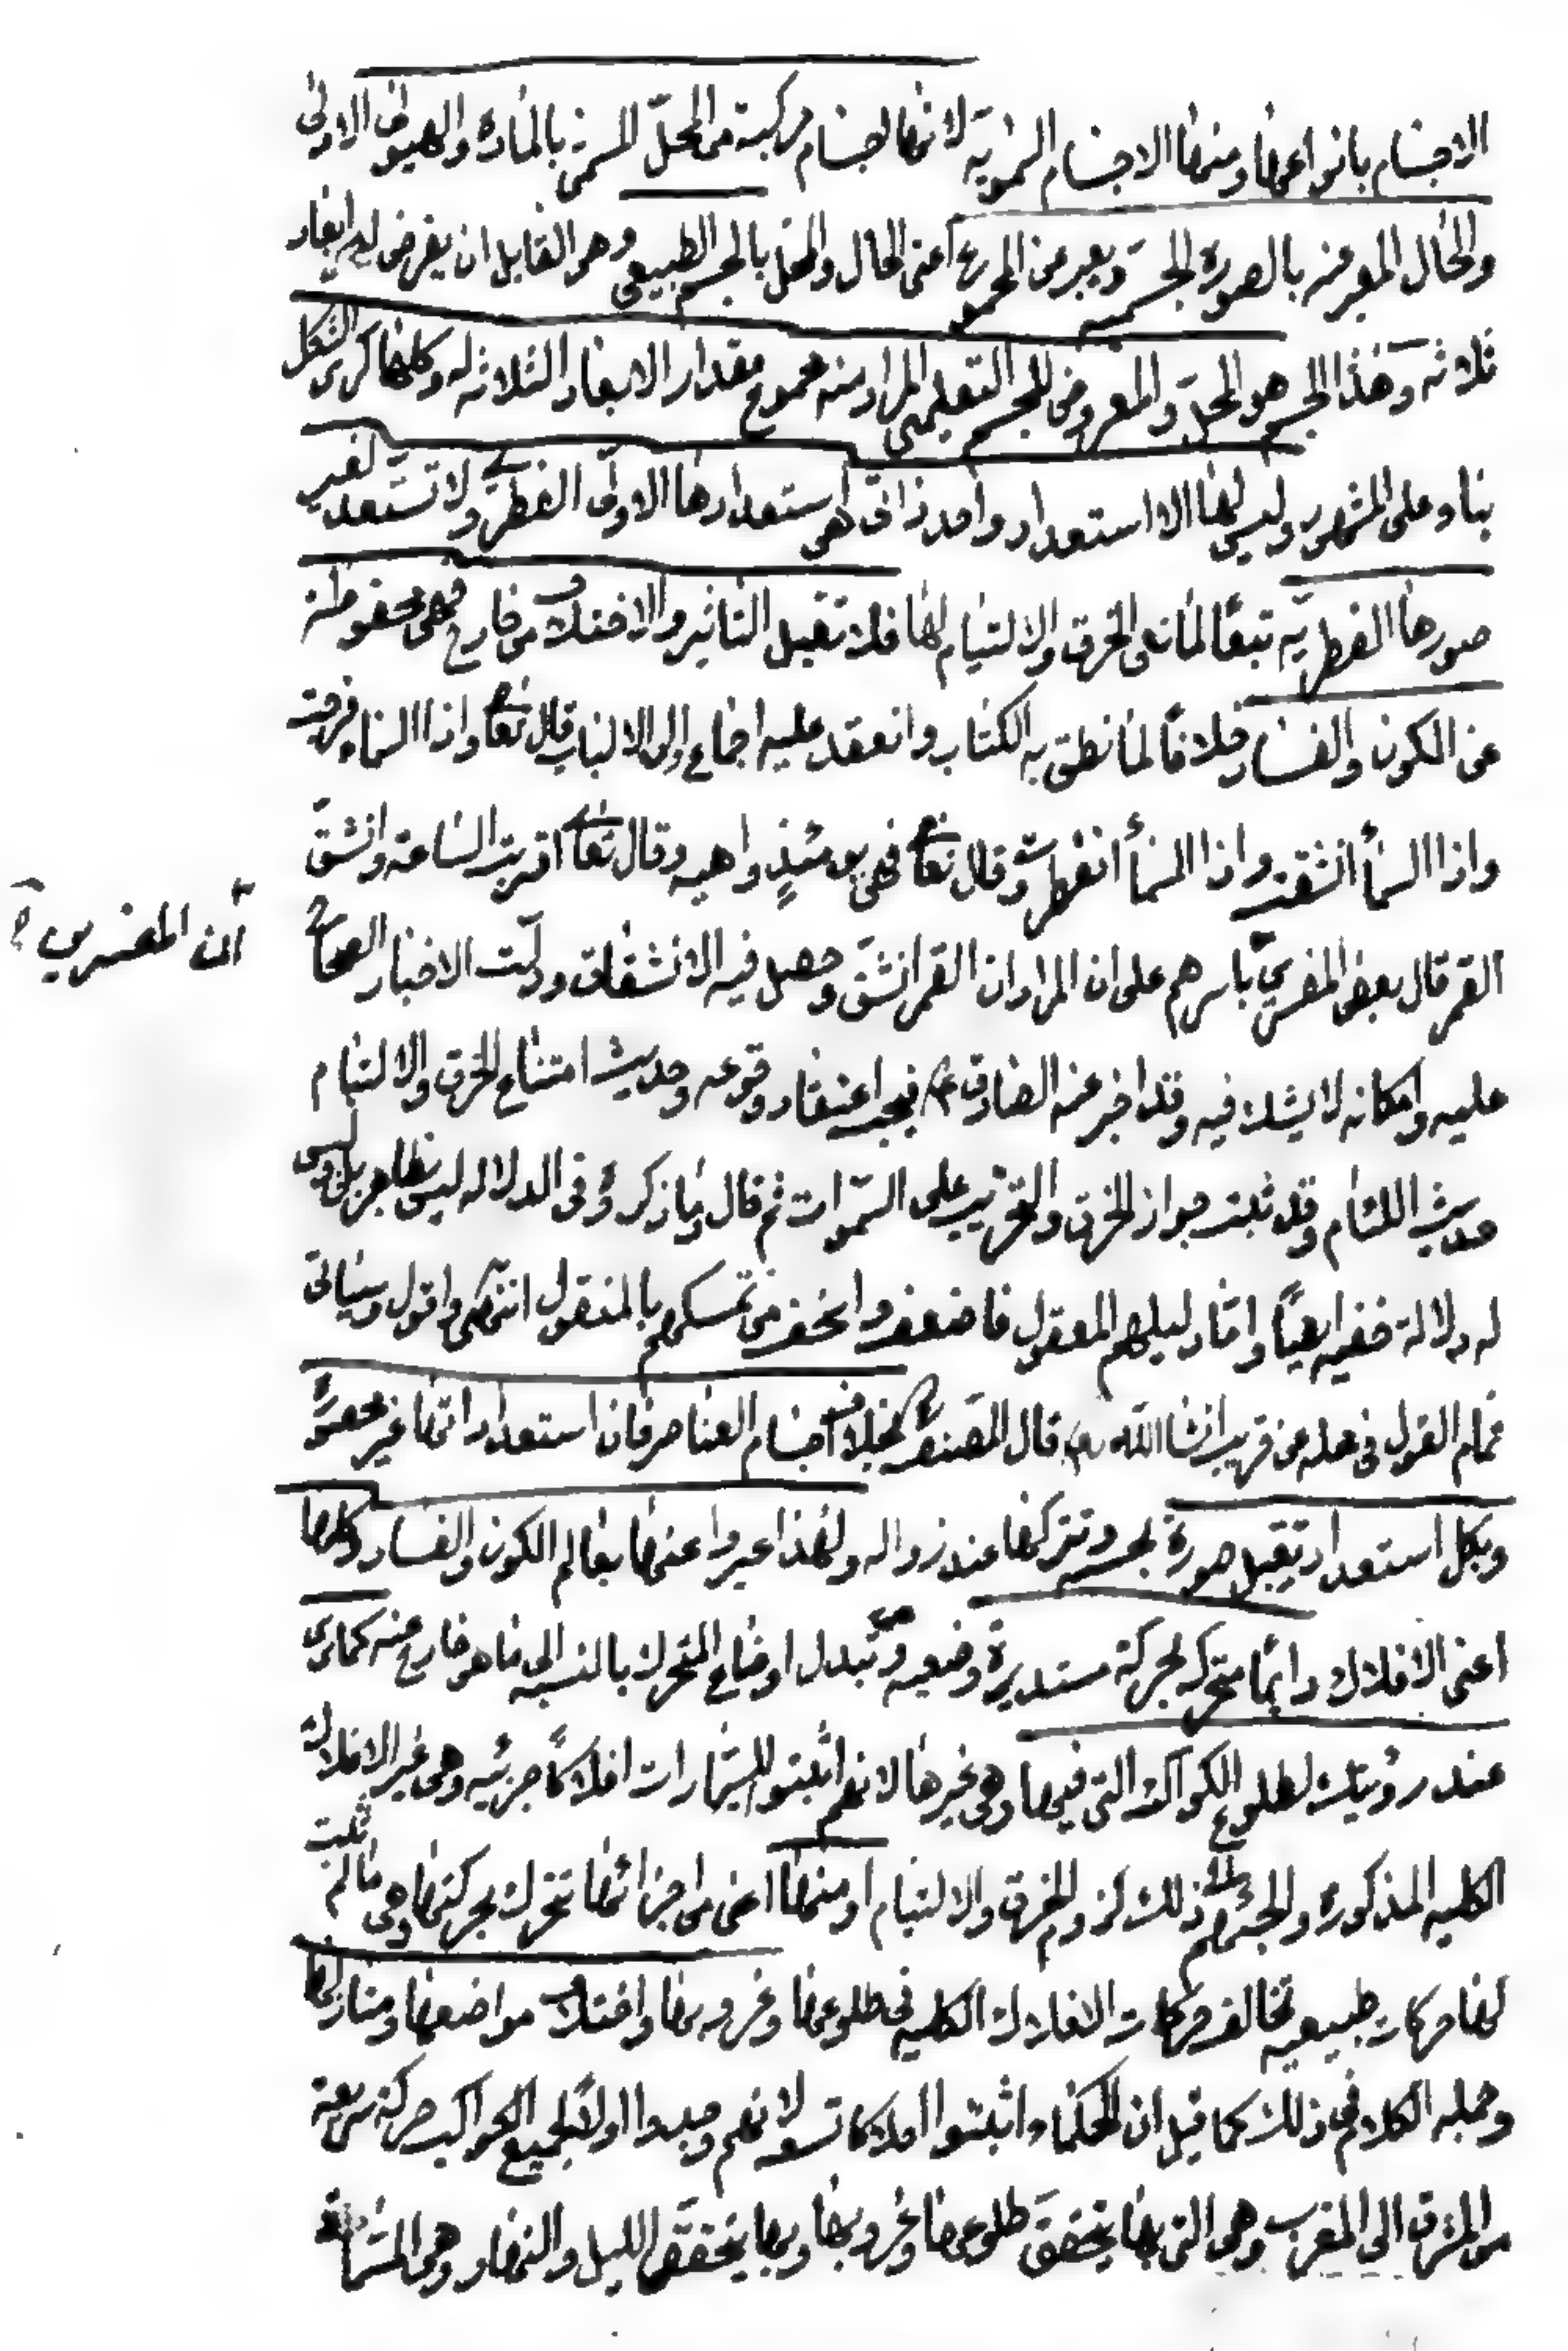 الاجسام بانواعها ومنها الاجسام السموية لانها اجسام مركبة من المحل المسمى بالمادة والهيولى الاولى
والحال المعبر عنه بالصورة الجسمية ويعبر عن المجموع اعنى الحال والمحل بالجسم الطبيعى وهو القابل ان يفرض له ابعاد
ثلاثه وهذا الجسم هو المحل والمعروض للجسم التعليمى المراد منه مجموع مقدار الابعاد الثلاثه له وكلها كرى الشكل
بناء على المشهور وليس لها الا استعداد واحد ذاتى هى استعدادها الاولى الفطرى ولا تستعد لغير
صورها الفطريه تبعًا لمانعى الخرق والالتيام لها فلا تقبل التاثير والاختلاف من خارج فهى محفوظة
عن الكون والفساد خلافًا لما نطق به الكتاب وانعقد عليه اجماع اولى الالباب قال تعا واذا السماء فرجت
واذا السمأ انشقت واذا السمأ انفطرت وقال تعا فهى يومئذٍ واهيه وقال تعا اقتربت الساعة وانشق
القمر قال بعض المفسرين باسرهم على ان المراد ان القمر انشق وحصل فيه الانشقاق ودلت الاخبار الصحاح
عليه وامكانه لا يشك فيه وقد اخبر عنه الصادق ع فيجب اعتقاد وقوعه وحديث امتناع الخرق والالتيام
حديث اللئام وقد ثبت جواز الخرق والتخريب على السموات ثم قال وما ذكروه فى الدلاله ليس بظاهر بل وليس
له دلالة خفيه ايضًا واما دليلهم المعقول فاضعف واخف من تمسكهم بالمنقول انتهى واقول وسياتى
تمام القول فى محله عن قريب انشا الله تع قال المصنف بخلاف اجسام العناصر فان استعداداتها غير محصورة
وبكل استعداد تقبل صورة بحسبه وتتركها عند زواله ولهذا عبروا عنها بعالم الكون والفساد وكلها
اعنى الافلاك دائمًا متحركة بحركة مستديرة وضعيه وهى تبدل اوضاع المتحرك بالنسبه الى ما هو خارج عنه كما ترى
عند رؤيتك لطلوع الكواكب التى فيها وهى غيرها لانهم اثبتوا للسيارات افلاكًا جزئيه وهى غير الافلاك
الكليه المذكوره والجئهم الى ذلك لزوم الخرق والالتيام او منها اعنى من اجزائها تتحرك بحركتها وهى ما لم تثبت
لها حركات طبيعيه تخالف حركات الافلاك الكليه فى طلوعها وغروبها واختلاف مواضعها ومنازلها
وجمله الكلام فى ذلك كما قيل ان الحكماء اثبتوا افلاكا تسعه لانهم وجدوا اولًا لجميع الكواكب حركة سريعة
من المشرق الى المغرب وهى التى بها يتحقق طلوعها وغروبها وبها يتحقق الليل والنهار وهى المسماة
ان المفسرين